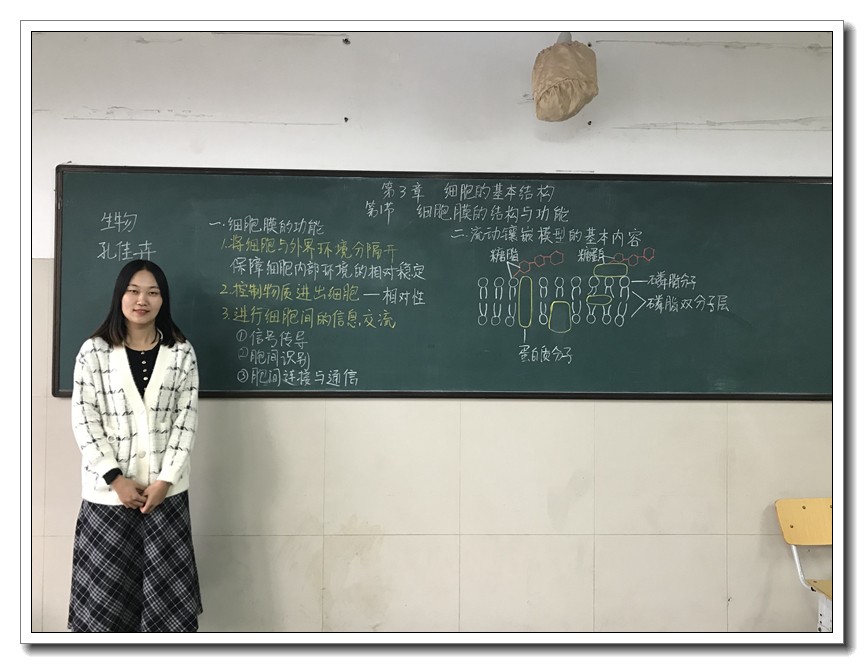 第3章 细胞的基本结构
第1节 细胞膜的结构与功能
生物
孔佳卉
一.细胞膜的功能
1.将细胞与外界环境分隔开
保障细胞内部环境的相对稳定
2.控制物质进出细胞—相对性
3.进行细胞间的信息交流
①信号传导
②胞间识别
③胞间连接与通信
二.流动镶嵌模型的基本内容
糖脂
糖蛋白
磷脂分子
磷脂双分子层
蛋白质分子